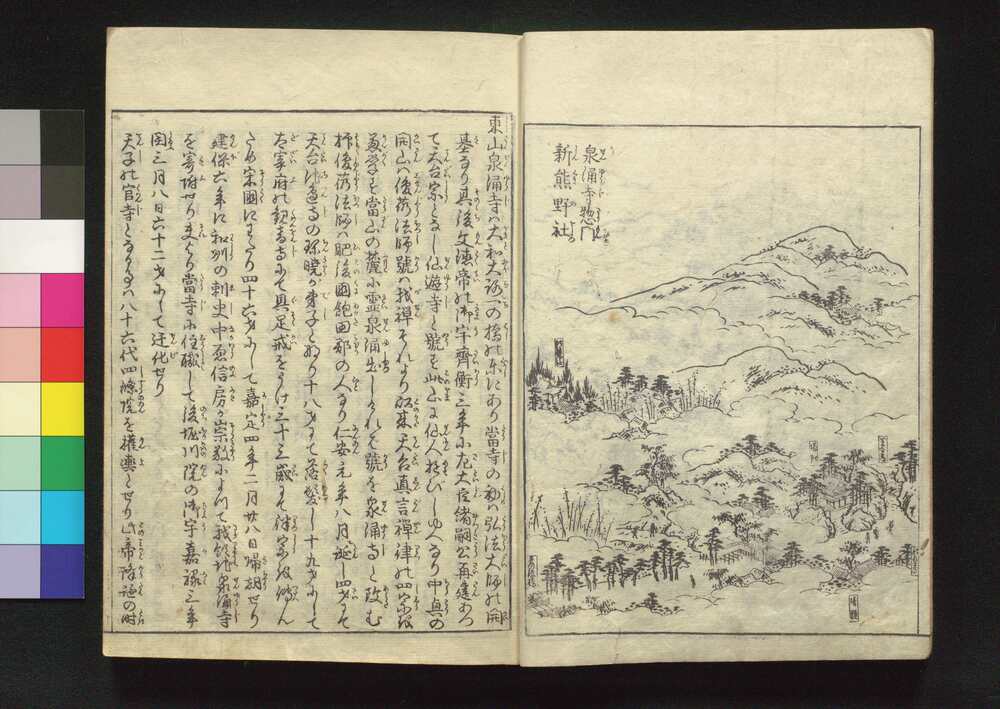 泉涌寺惣門
新熊野社
東山泉涌寺ハ大和大路一の橋の東にあり當寺の初ハ弘法大師の開
基なり其後文徳帝の御宇齊衡三年に左大臣緒嗣公再建あつ
て天台宗となし仙遊寺と號す此山に仙人遊びしゆへなり中興の
開山ハ俊芿法師號ハ我禅それより以来天台真言禅律の四宗を
兼学す當山の麓に霊泉涌出しけれバ號を泉涌寺と改む
抑俊芿法師ハ肥後國飽田郡の人なり仁安元年八月誕し四才にて
天台 の珍暁が弟子となり十八才にて落髪し十九才にして
太宰府の観音寺にて具足戒をうけ三十三歳にて律宗を
ため宋國にわたり四十六才にして嘉定四年二月廿八日帰朝せり
建保六年に和州の刺史中原信房が崇敬によつて 泉涌寺
を寄附せり 當寺に住職して後堀川院の御宇嘉禄三年
閏三月八日六十二才にして迁化せり
天子の官寺となる事ハ八十六代四條院を權輿とせり此帝降誕の時